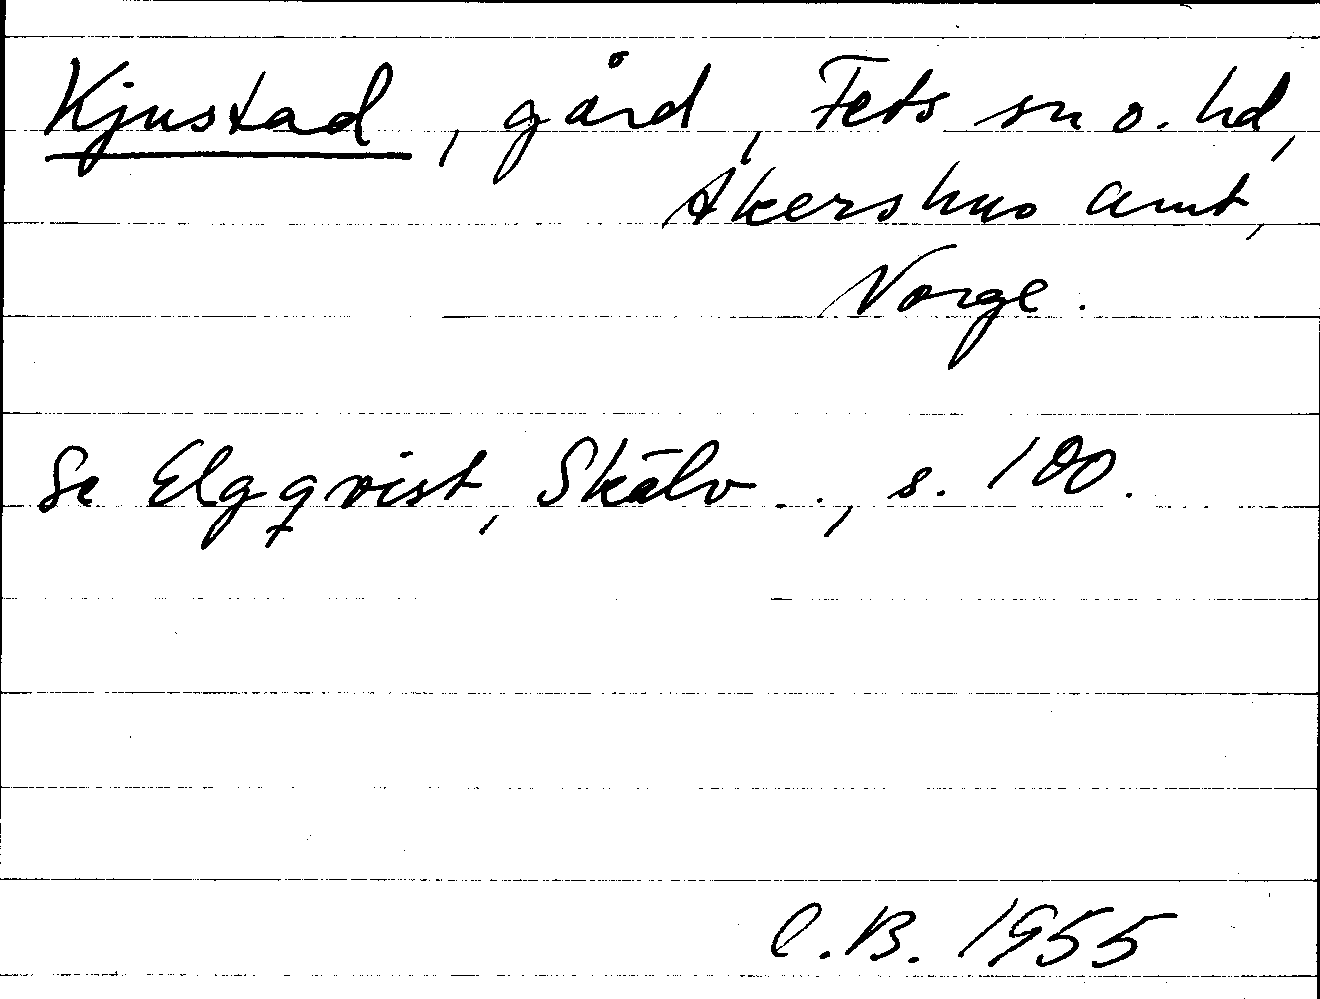 Kjustad, gård, Fets sn o. hd,
Akershus amt,
Norge.
Se Elgqvist, Skälv.., s. 100.
C.B. 1955